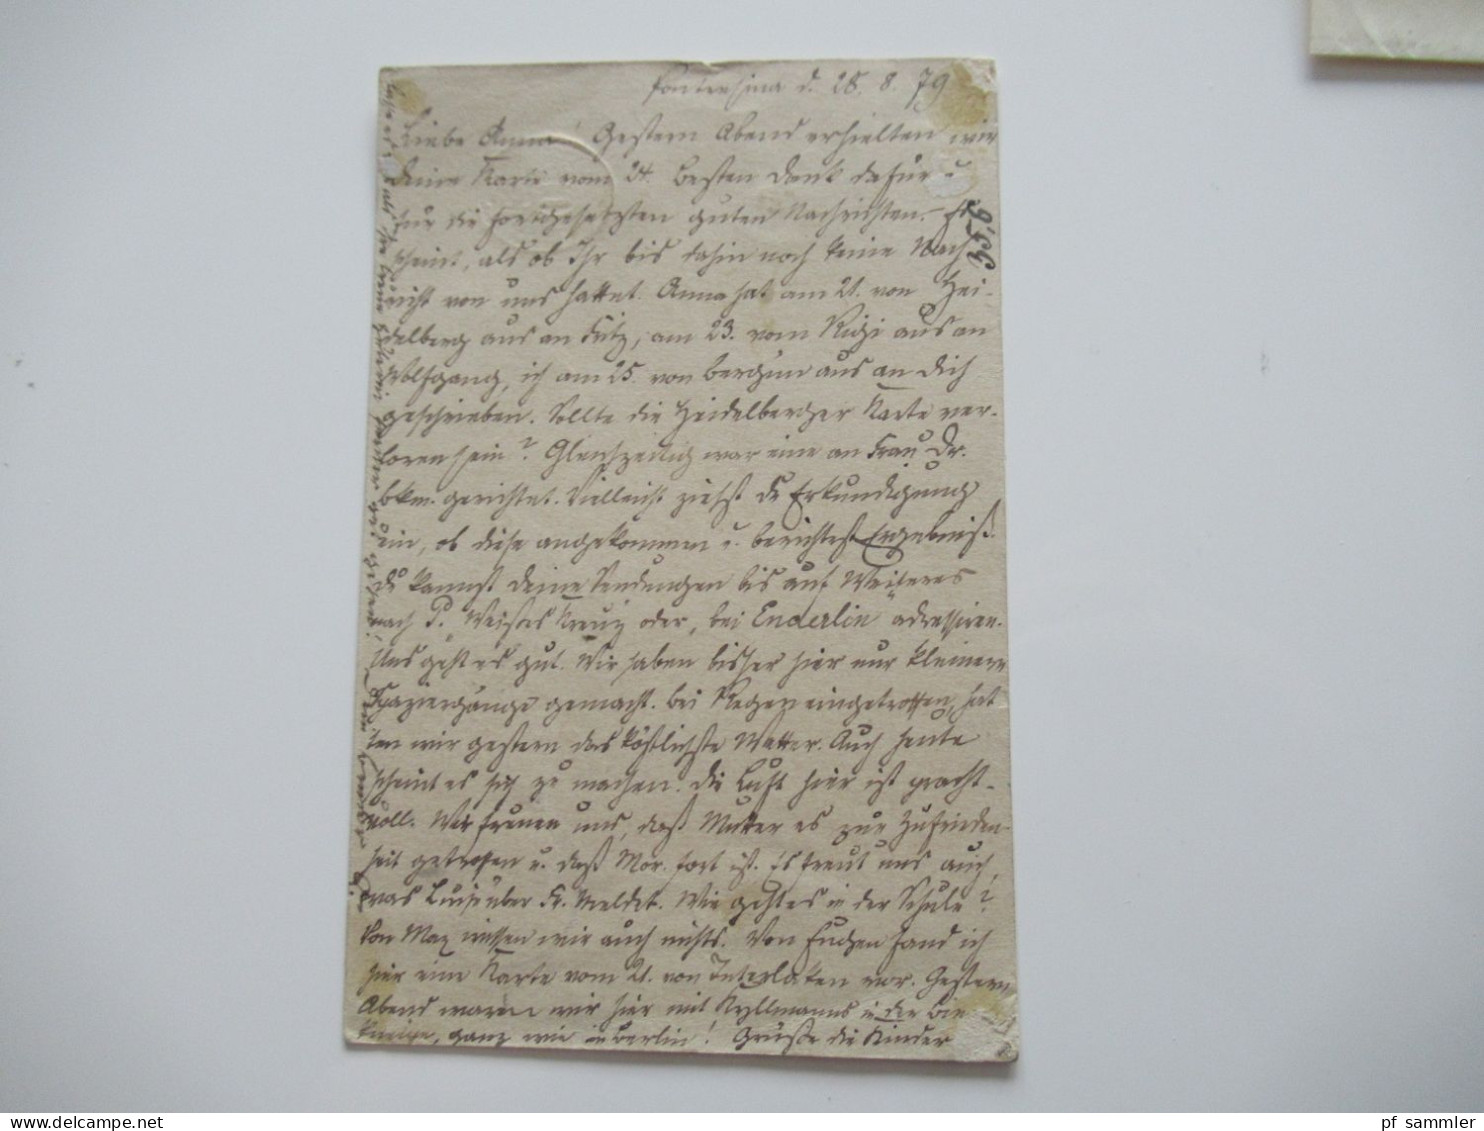 Pontresina d. 28. 8. 79
Liebe Anna! Gestern Abend erhielten wir
Deine Karte vom 24. Besten Dank dafür u
für die fortgesetzten guten Nachrichten. – Es
scheint, als ob Ihr bis dahin noch keine Nach
richt von uns hattet. Anna hat am 21. von Hei-
delberg aus an Fritz, am 23. vom Rigi aus an
Wolfgang, ich am 25. von Bergün aus an Dich
geschrieben. Sollte die Heidelberger Karte ver-
loren sein? Gleichzeitig war eine an Frau Dr.
Bkm. gerichtet. Vielleicht ziehst Du Erkundigung
ein, ob diese angekommen u. berichtest Ergebniß.
Du kannst Deine Sendungen bis auf Weiteres
nach P. Weißes Kreuz oder, bei Enderlin adressiren.
Uns geht es gut. Wir haben bisher hier nur kleinere
Spaziergänge gemacht. Bei Regen eingetroffen, hat
ten wir gestern das köstlichste Wetter. Auch heute
scheint es sich zu machen. Die Luft hier ist pracht-
voll. Wir freuen uns, daß Mutter es zur Zufrieden-
heit getroffen u. daß Mor. fort ist. Es freut uns auch,
was Luise über Fr. meldet. Wie geht es in der Schule?
Von Max wissen wir auch nichts. Von Euchen fand ich
hier eine Karte vom 21. von Interlaken vor. Gestern
Abend waren wir hier mit Kyllmanns in der Bier
kneipe, ganz wie in Berlin! Grüße die Kinder
pf sammler